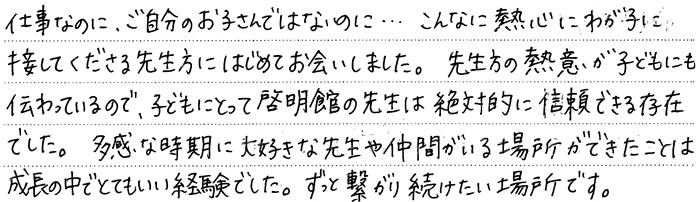 仕事なのに、ご自分のお子さんではないのに… こんなに熱心にわが子に
接してくださる先生方にはじめてお会いしました。 先生方の熱意が子どもにも
伝わっているので、子どもにとって啓明館の先生は絶対的に信頼できる存在
でした。 多感な時期に大好きな先生や仲間がいる場所ができたことは
成長の中でとてもいい経験でした。ずっと繋がり続けたい場所です。